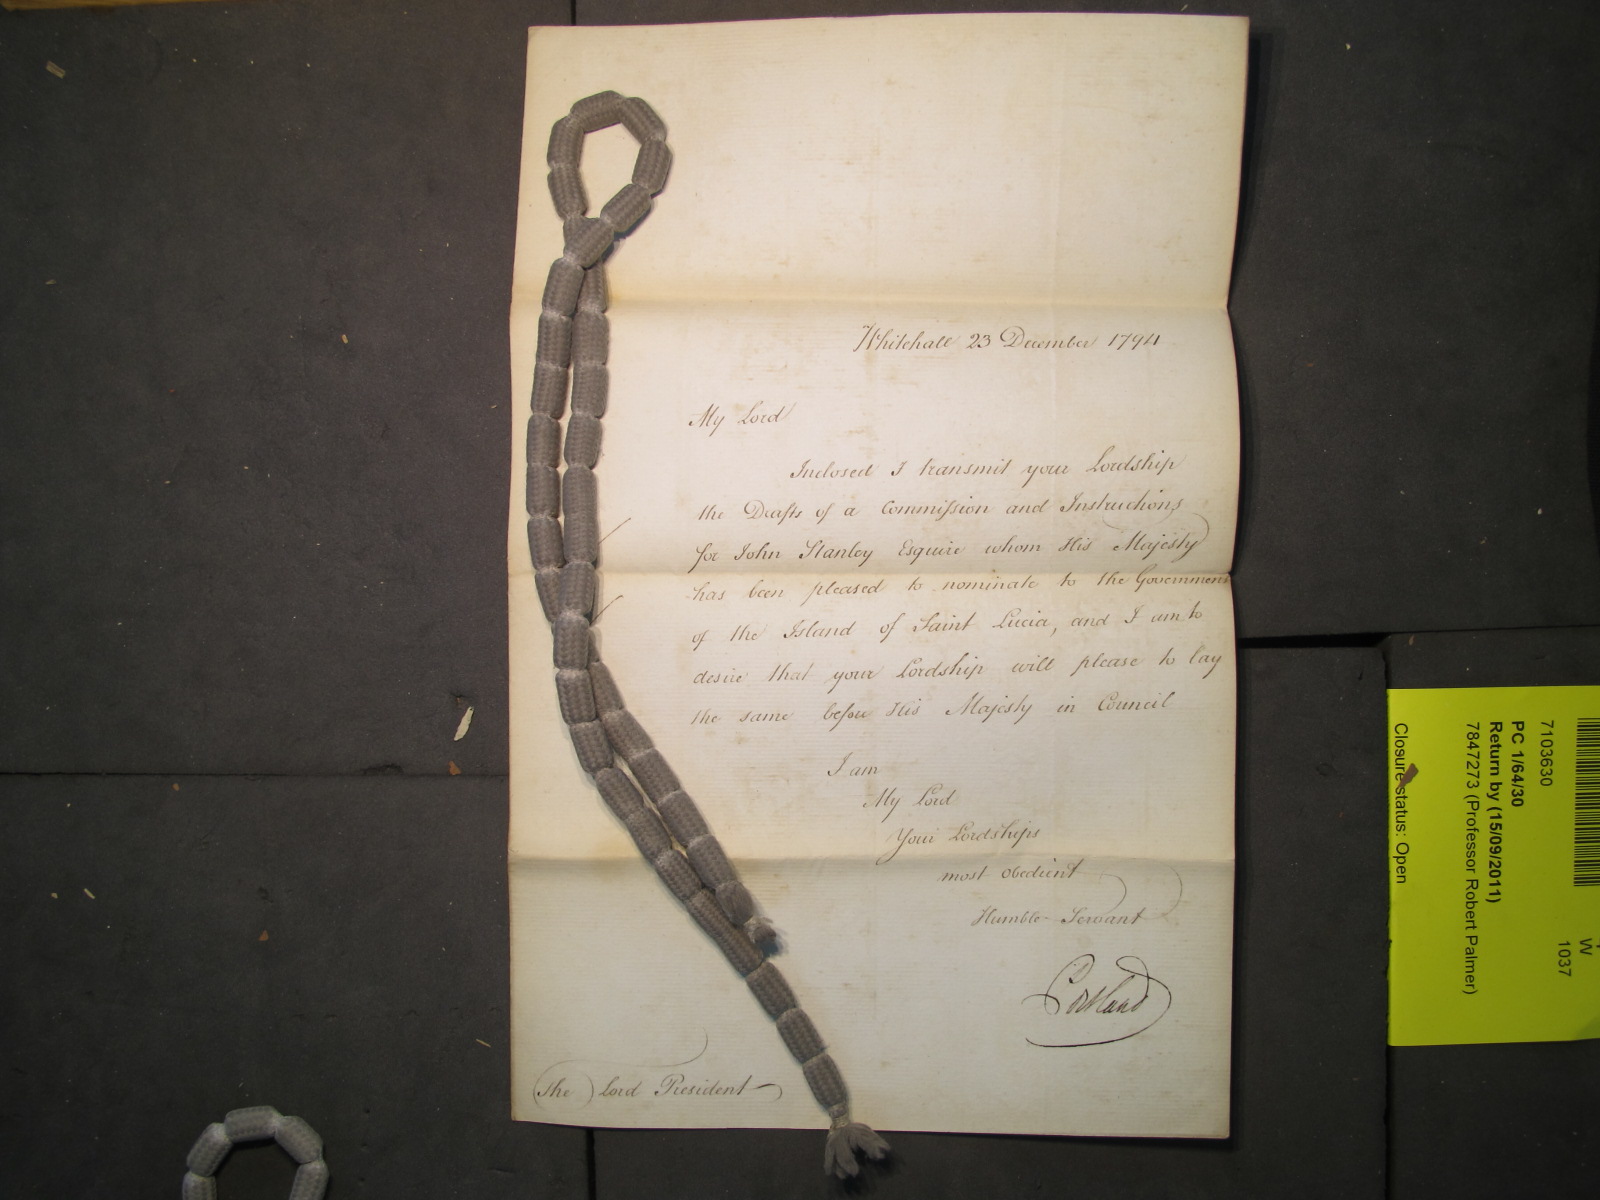 Whitehall 23 December 1794
My Lord
Inclosed I transmit your Lordship
the Drafts of a Commission and Instructions
for John Stanley Esquire whom His Majesty
has been pleased to nominate to the Government
of the Island of Saint Lucia, and I am to
desire that your Lordship will please to lay
the same before His Majesty in Council
I am
My Lord
Your Lordships
most obedient
Humble Servant
Portland
The Lord President
W
1037
7103630
PC 1/64/30
Return by (15/09/2011)
7847273 (Professor Robert Palmer)
Closure status: Open